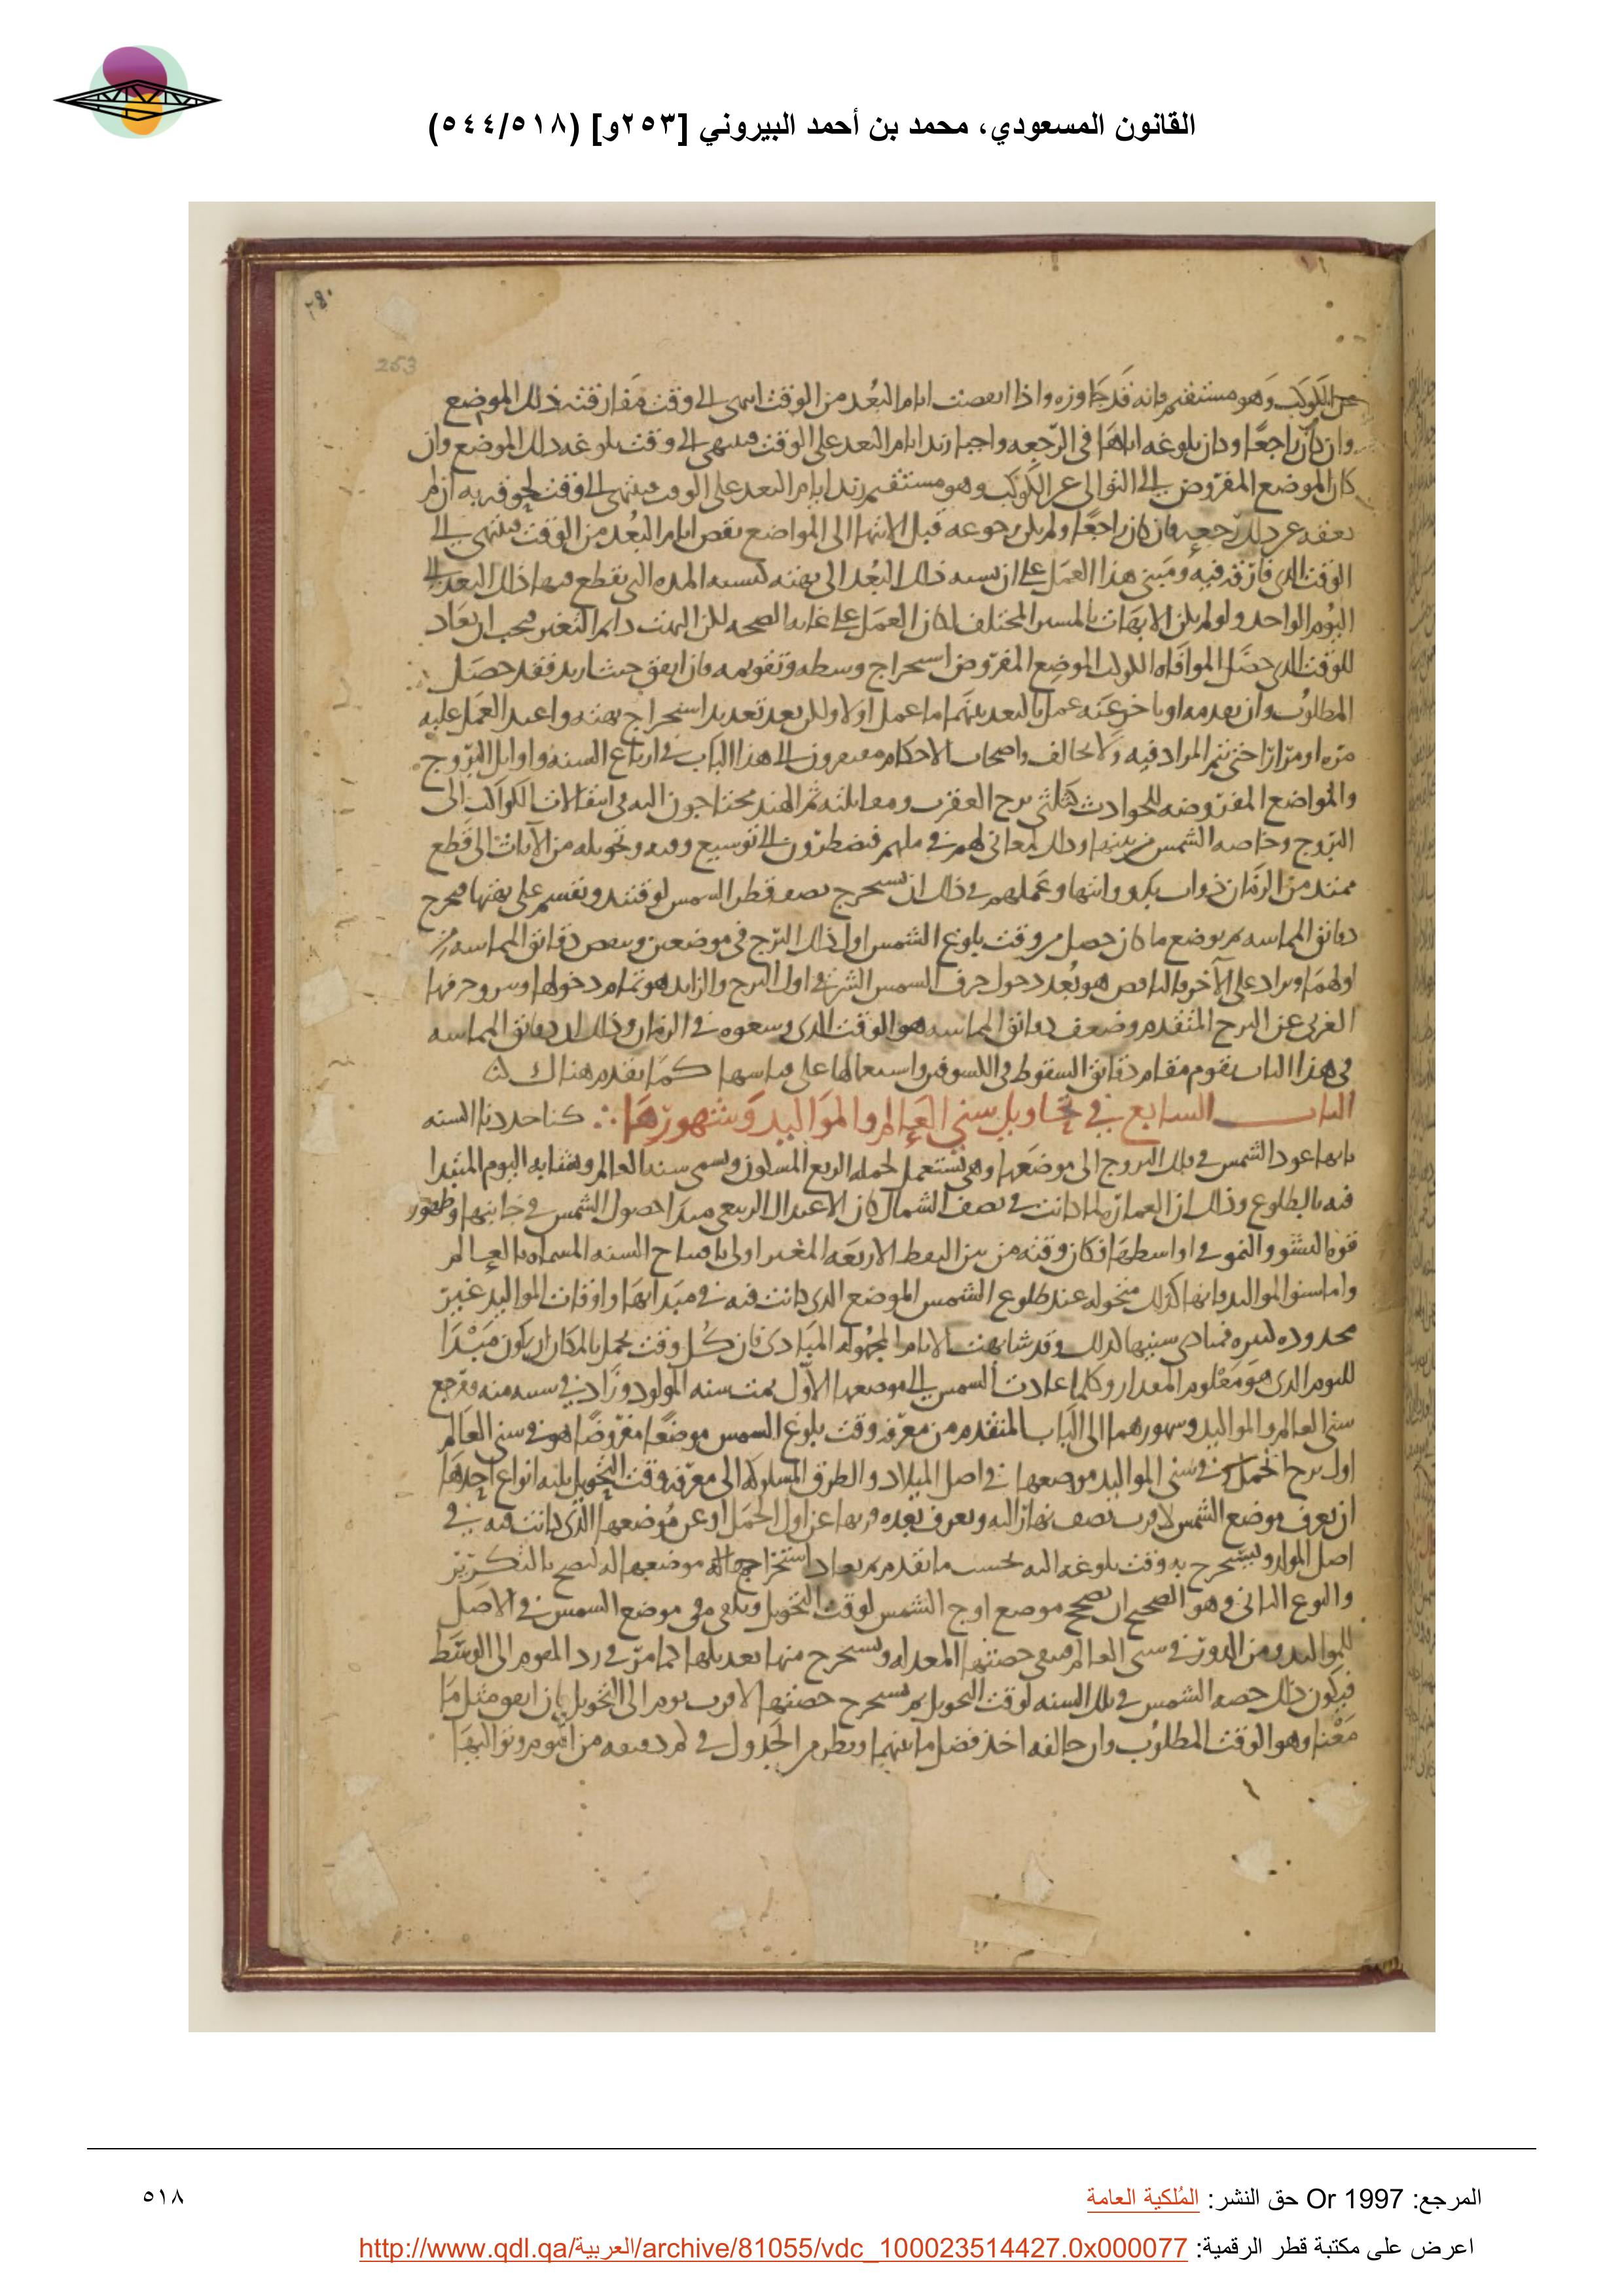 القانون المسعودي، محمد بن أحمد البيروني [٢٥٣و] (٥٤٤/٥١٨)
٢٨٠
253
عن الكوكب وهو مستقيم فانه قد جاوزه واذا انقصت ايام البعد من الوقت انتهى الى وقت مفارقته ذلك الموضع
وان كان راجعا وكان بلوغه اياها في الرجعه واجبا زيد ايام البعد على الوقت فينتهي الى وقت بلوغه ذلك الموضع وان
كان الموضع المفروض الى التوالي عن الكوكب وهو مستقيم زيد ايام البعد على الوقت فينتهي الى وقت لحوقه به ان لم
يعقه عن ذلك رجعه فان كان راجعا ولم يكن رجوعه قبل الانتها الى المواضع نقص ايام البعد من الوقت فينتهي الى
الوقت الذي فارقه فيه ومبنى هذا العمل على ان نسبه ذلك البعد الى بهته كنسبه المده التي يقطع فيها ذلك البعد الى
اليوم الواحد ولو لم يكن الابهات بالمسير المختلف لكان العمل على غايه الصحه لكن البهت دايم التغير فيجب ان يعاد
للوقت الذي حصل لموافاه الكوكب الموضع المفروض استخراج وسطه وتقويمه فان اتفق حيث اريد فقد حصل
المطلوب وان تقدمه او تاخر عنه عمل بالبعد بينهما ما عمل اولا ولكن بعد تجديد استخراج بهته واعيد العمل عليه
مره او مرارا حتى يتم المراد فيه ولا يخالف واصحاب الاحكام مفتقرون الى هذا الباب في ارباع السنه واوايل البروج
والمواضع المفروضه للحوادث كثلثي برج العقرب ومقابلته ثم الهند يحتاجون اليه في انتقالات الكواكب الى
البروج وخاصه الشمس من بينها وذلك لمعاني لهم في ملتهم فيضطرون الى توسيع وقته وتحويله من الآنات الى قطع
ممتد من الزمان ذوات بدو وانتها وعملهم في ذلك ان يستخرج نصف قطر الشمس لوقتئذ ويقسم على بهتها فيخرج
دقائق المماسه ثم يوضع ما كان حصل من وقت بلوغ الشمس اول ذلك البرج في موضعين وينقص دقائق المماسه من
اولهما ويزاد على الآخر فالناقص هو بعد دخول جرف الشمس الشرقي اول البرج والزايد هو تمام دخولها وخروج جرفها
الغربي عن البرج المتقدم وضعف دقائق المماسه هو الوقت الذي وسعوه في الزمان وذلك ان دقائق المماسه
في هذا الباب يقوم مقام دقائق السقوط في الكسوف واستعمالها على قياسها كما تقدم هناك
الباب السابع في تحاويل سني العالم والمواليد وشهورها كنا حددنا السنه
بانها عود الشمس في فلك البروج الى موضعها وهي تستعمل لجمله الربع المسكون وتسمى سنه العالم وتشابه اليوم المبتدا
فيه بالطلوع وذلك ان العماره لما كانت في نصف الشمال كان الاعتدال الربيعي مبدا حصول الشمس في جانبها وظهور
قوه النشو والنمو في اواسطها فكان وقته من بين النقط الاربعه المغير اولى بافتتاح السنه المسماه بالعالم
واما سنوا المواليد فانها كذلك متحوله عند طلوع الشمس الموضع الذي كانت فيه في مبداها واوقات المواليد غير
محدوده لكثره فمبادي سنيها كذلك وقد شابهت الايام المجهوله المبادي فان كل وقت يحمل بالمكان ان يكون مبدا
لليوم الذي هو معلوم المقدار وكلما عادت الشمس الى موضعها الاول تمت سنه المولود وزاد في سنيه سنه ومرجع
سني العالم والمواليد وشهورهما الى الباب المتقدم من معرفه وقت بلوغ الشمس موضعا مفروضا هو في سني العالم
اول برج الحمل وفي سني المواليد موضعها في اصل الميلاد والطرق المسلوكه الى معرفه وقت التحويل ثلثه انواع احدها
ان نعرف موضع الشمس لاقرب نصف نهار اليه ونعرف بعده فربها عن اول الحمل او عن موضعها الذي كانت فيه في
اصل المولد ونستخرج به وقت بلوغه اليه بحسب ما تقدم ثم يعاد استخراج موضعها اليه ليصح بالتكرير
والنوع الثاني وهو الصحيح ان نصحح موضع اوج الشمس لوقت التحويل ونلقي من موضع الشمس في الاصل
للمواليد ومن الدور في سني العالم فيبقى حصتها المعدله ونستخرج منها تعديلها كما مر في رد المقوم الى الوسط
فيكون ذلك حصه الشمس في تلك السنه لوقت التحويل ثم نستخرج حصتها لاقرب يوم الى التحويل فان اتفق مثل ما
معنا وهو الوقت المطلوب وان خالفه اخذ فضل ما بينهما ونظر من الجدول في كم دفعه من ايوم وتواليها
المرجع: Or 1997 حق النشر: المُلكية العامة
٥١٨
اعرض على مكتبة قطر الرقمية: http://www.qdl.qa/العربية/archive/81055/vdc_100023514427.0x000077